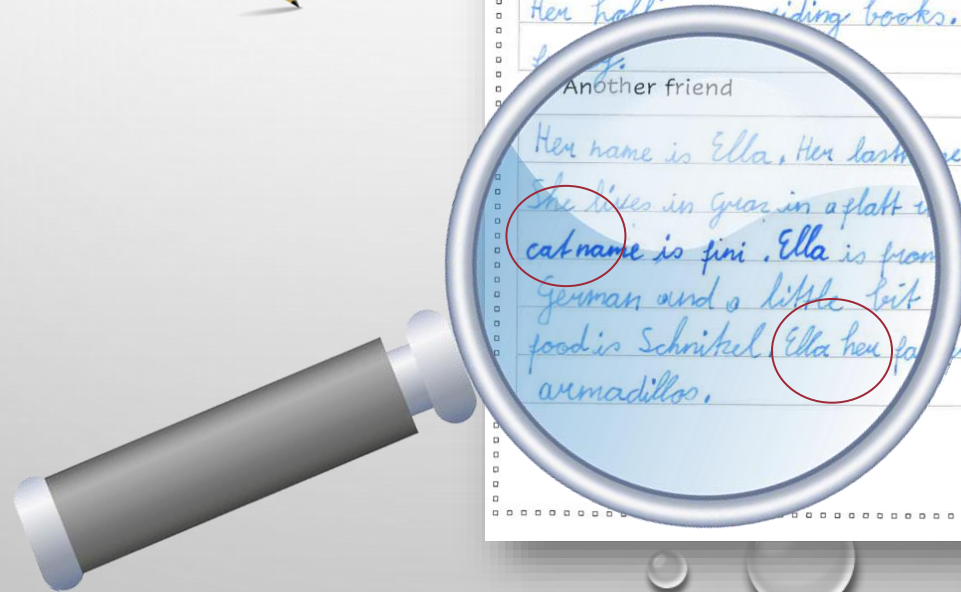 Her riding books.
Another friend
Her name is Ella. Her last
She lives in Graz in a flatt
cat name is fini. Ella is from
German and a little bit
food is Schnitzel. Ella her fa
armadillos.